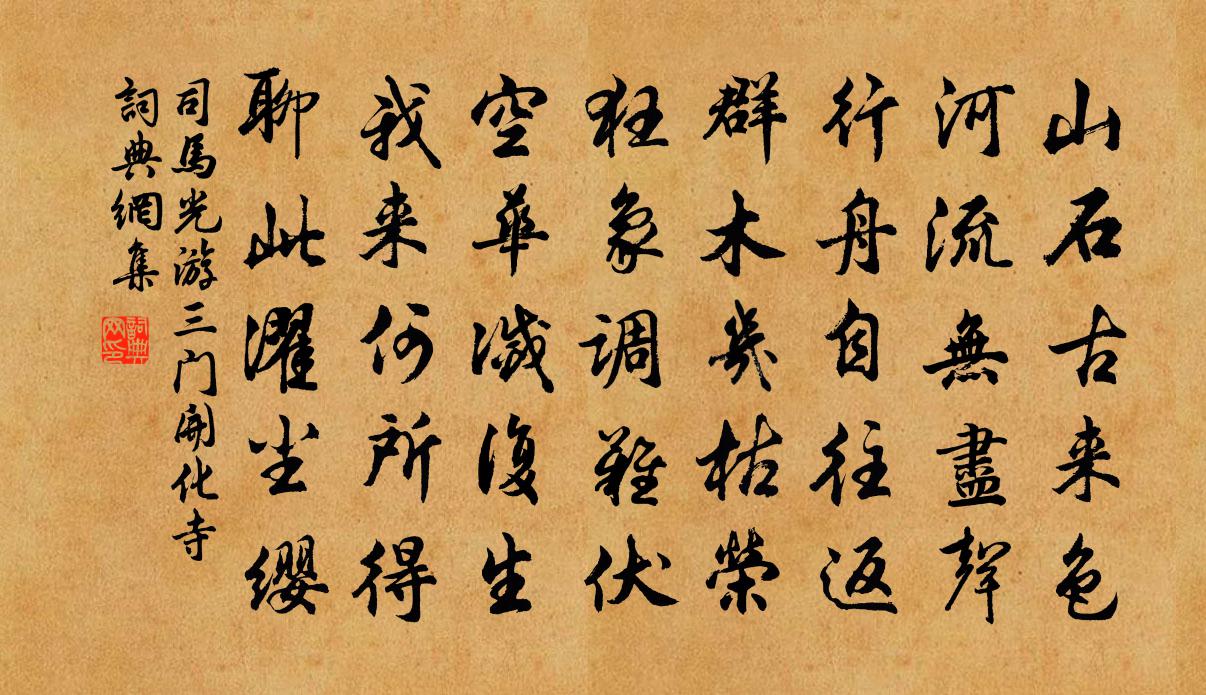 山石古来色
河流無盡聲
行舟自往返
群木幾枯榮
狂象調難伏
空華滅復生
我来何所得
聊此濯尘缨
司馬光游三门開化寺
詞典網集
詞典
网印